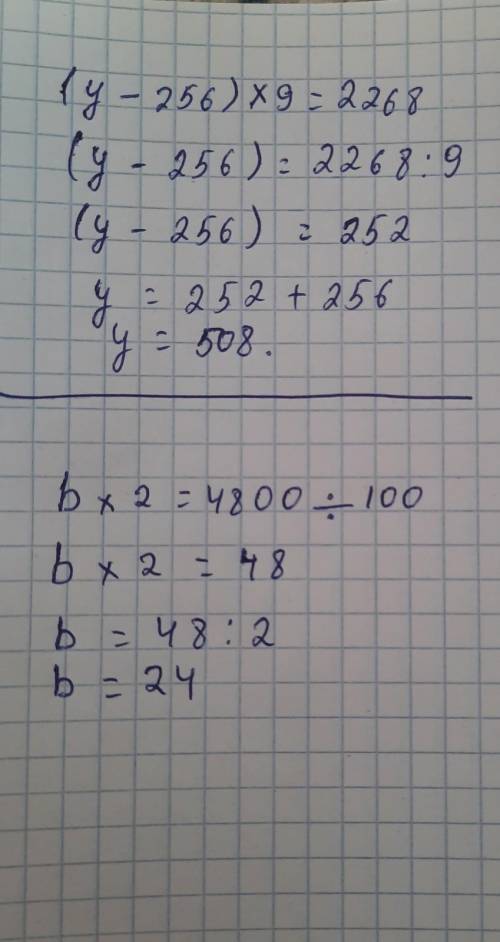 (y - 256) × 9 = 2268
(y - 256) = 2268 : 9
(y - 256) = 252
y = 252 + 256
y = 508.
b × 2 = 4800 ÷ 100
b × 2 = 48
b = 48 : 2
b = 24